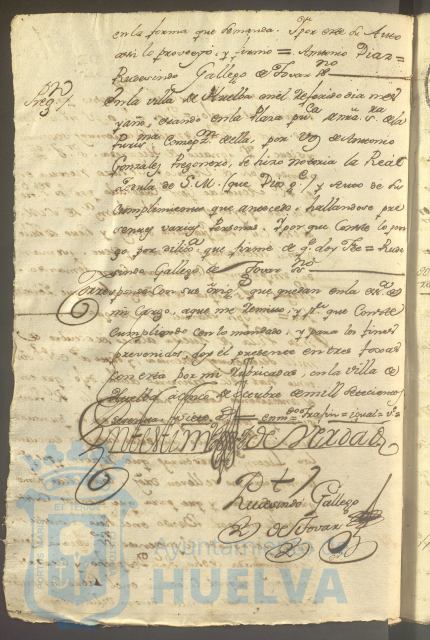 en la forma que se manda. Y por este su Auto
assi lo proveyó, y firmó = Antonio Diaz =
Rudesindo Gallego de Tovar
Preg.n
En la villa de Huelva en el referido dia mes
y año, estando en la Plaza pu.ca
Puris.ma Comcep.on de ella, por voz de Antonio
Gonzalez Pregonero, se hizo notoria la Real
Cedula de S.M. (que Dios g.e) y Auto de su
Cumplimiento que antecede, hallandose pre
sentes varias Personas. Y por que Conste lo pon
go por dilig.a que firmé de q.e doy Fee = Rude
sindo Gallego de Tovar
Corresponde Con sus Orig.s que quedan en la
mi Cargo, a que me Remito, y p.a que Conste
Cumpliendo con lo mandado, y para los fines
prevenidos, doy el presente en tres foxas
con esta por mi Rubricadas, en la Villa de
Huelva de octubre de mill setecientos
y siete = enm.do
En testim.o de Verdad
Rudesindo Gallego
de Tovar
Ayuntamiento de
HUELVA